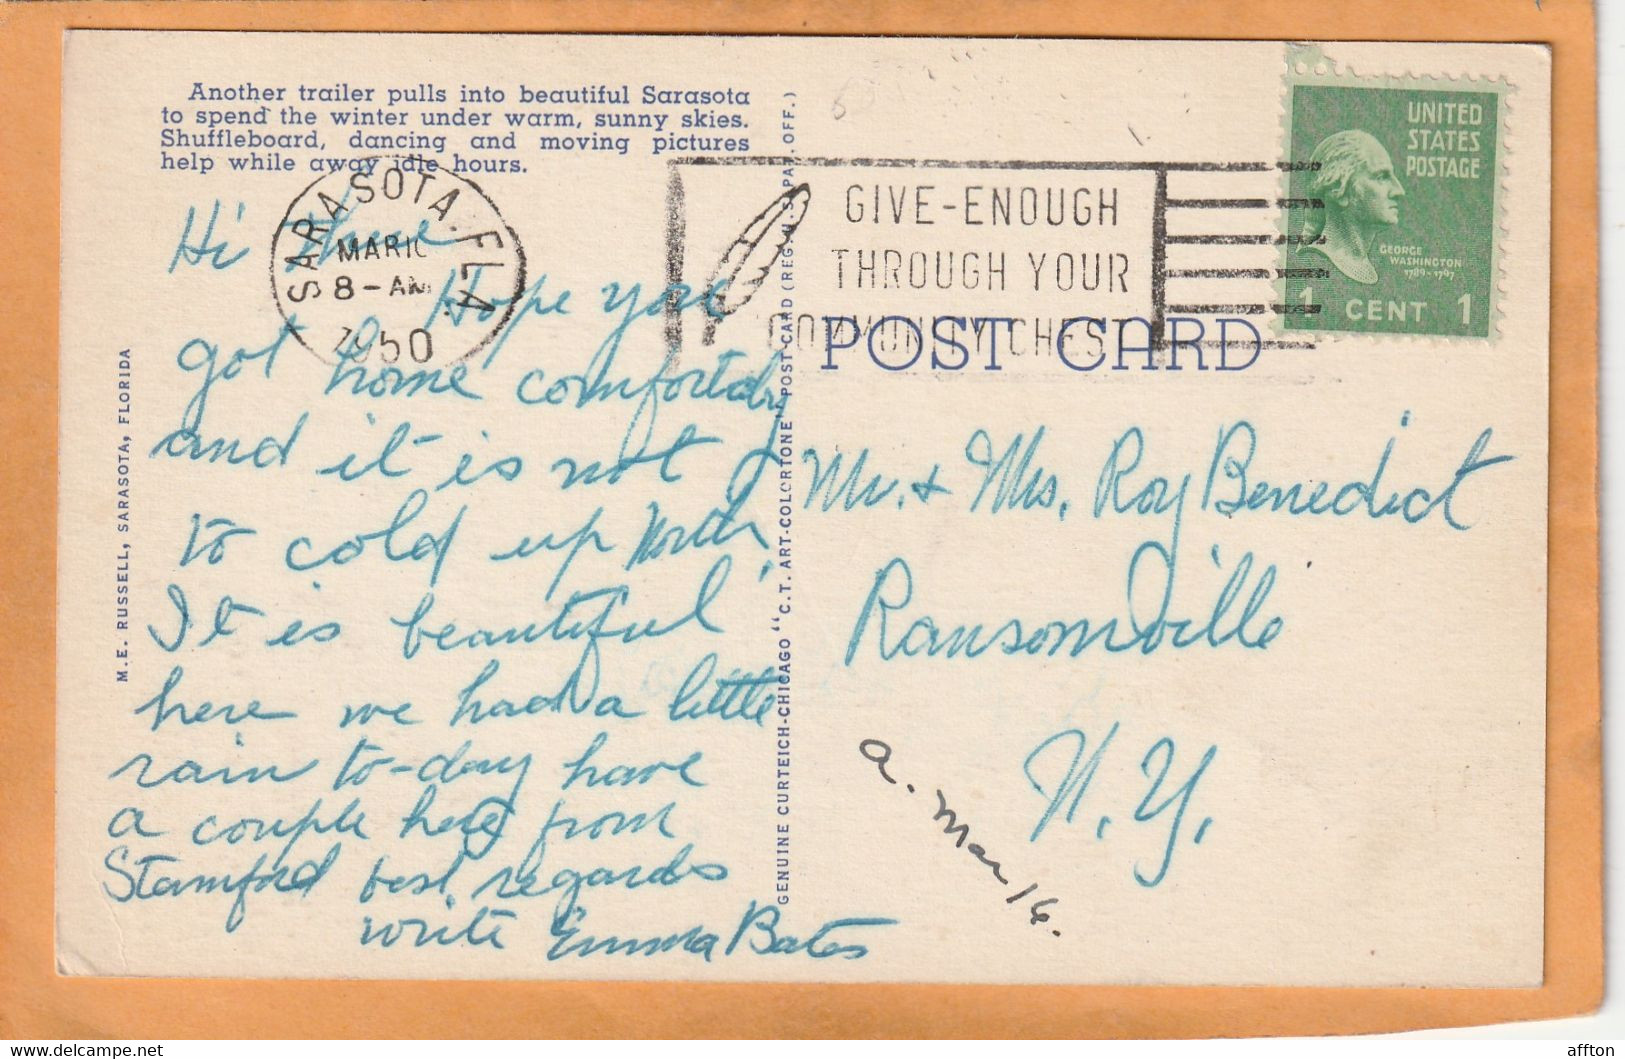 Another trailer pulls into beautiful Sarasota
to spend the winter under warm, sunny skies.
Shuffleboard, dancing and moving pictures
help while away idle hours.
SARASOTA. FLA.
MAR 10
8-AM
1950
GIVE-ENOUGH
THROUGH YOUR
COMMUNITY CHEST
UNITED
STATES
POSTAGE
GEORGE
WASHINGTON
1789-1797
1 CENT 1
POST CARD
Hi there
Hope you
got home comfortably
and it is not
to cold up North,
It is beautiful
here we had a little
rain to-day have
a couple here from
Stamford best regards
write Emma Bates
Mr. & Mrs. Roy Benedict
Ransomville
N.Y.
a. Mar 16.
M.E. RUSSELL, SARASOTA, FLORIDA
GENUINE CURTEICH-CHICAGO "C.T. ART-COLORTONE" POST CARD (REG. U.S. PAT. OFF.)
delcampe.net
affton